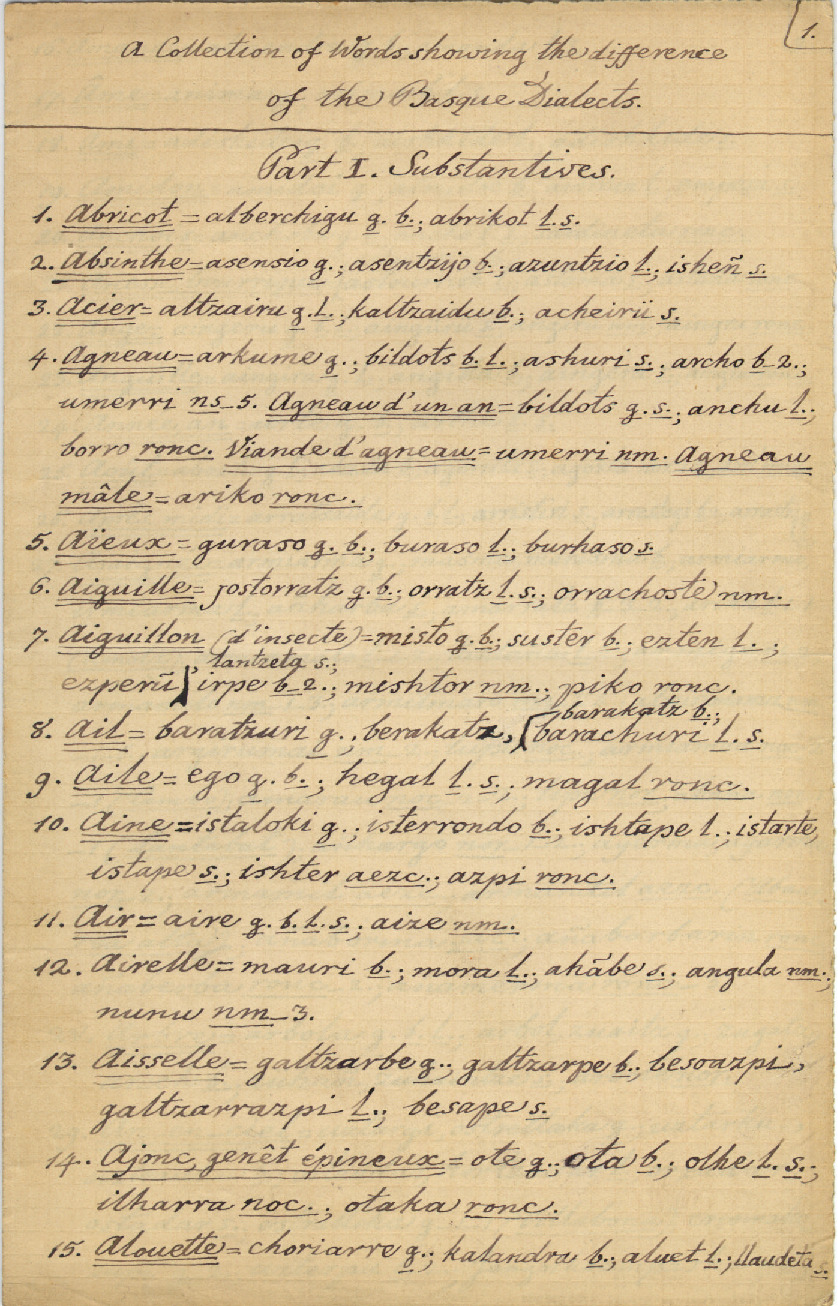 1.
A Collection of Words showing the difference
of the Basque Dialects.
Part I. Substantives.
1. Abricot = alberchigu g. b.; abrikot l. s.
2. Absinthe = asensio g.; asentzijo b.; azuntzio l.; isheñ s.
3. Acier = altzairu g. l.; kaltzaidu b.; acheirü s.
4. Agneau = arkume g.; bildots b. l.; ashuri s.; archo b_2.;
umerri ns_5. Agneau d'un an = bildots g. s.; anchu l.;
borro ronc. Viande d'agneau = umerri nm. Agneau
mâle = ariko ronc.
5. Aïeux = guraso g. b.; buraso l.; burhaso s.
6. Aiguille = jostorratz g. b.; orratz l. s.; orrachoste nm.
7. Aiguillon (d'insecte) = misto g. b.; suster b.; ezten l.;
, lantzeta s.;
ezperü irpe b_2.; mishtor nm.; piko ronc.
barakatz b.;
8. Ail = baratzuri g.; berakatz, barachuri l. s.
9. Aile = ego g. b.; hegal l. s.; magal ronc.
10. Aine = istaloki g.; isterrondo b.; ishtape l.; istarte,
istape s.; ishter aezc.; azpi ronc.
11. Air = aire g. b. l. s.; aize nm.
12. Airelle = mauri b.; mora l.; ahãbe s.; angula nm.;
nunu nm_3.
13. Aisselle = galtzarbe g.; galtzarpe b.; besoazpi,
galtzarrazpi l.; besape s.
14. Ajonc, genêt épineux = ote g.; ota b.; othe l. s.;
ilharra noc.; otaka ronc.
15. Alouette = choriarre g.; kalandra b.; aluet l.; llaudeta s.